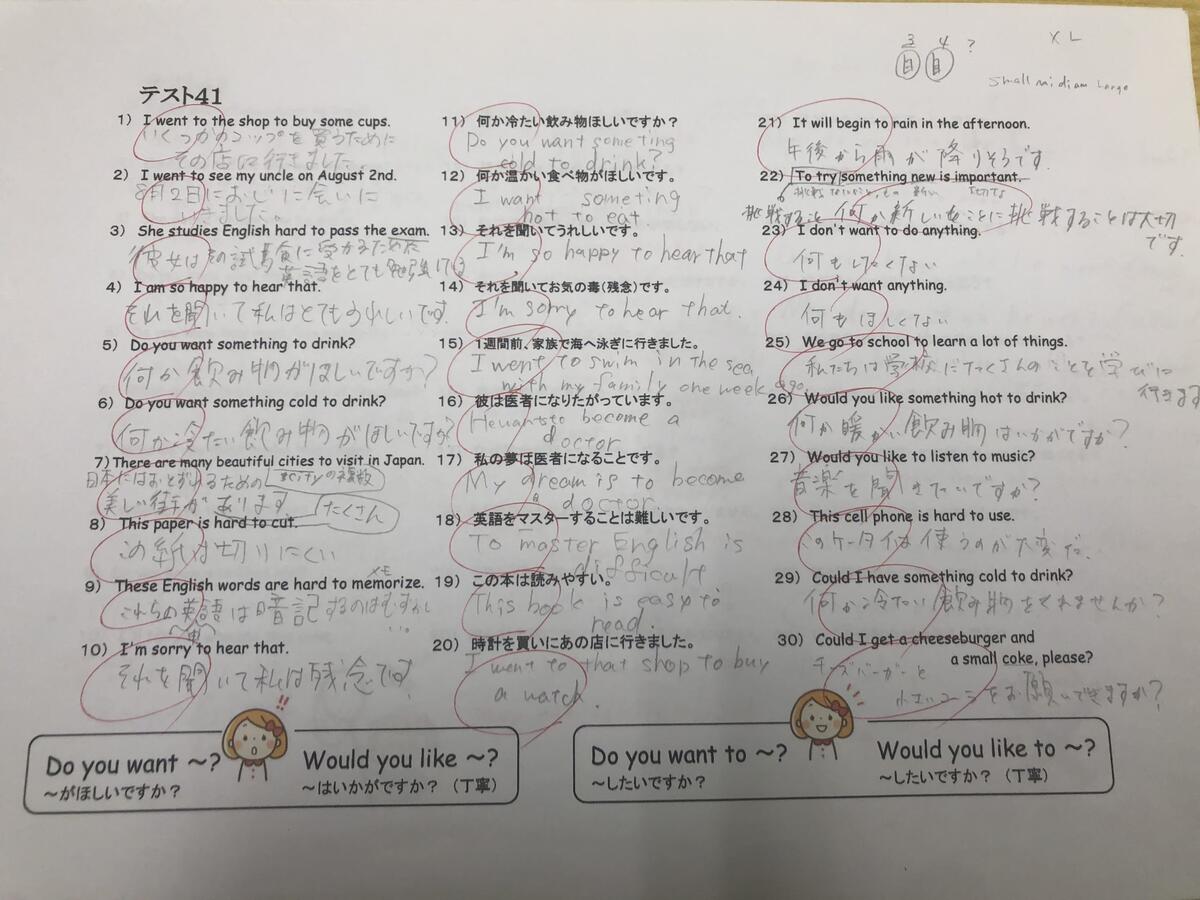 3 4 ?
目 目
X L
small midiam Large
テスト41
1) I went to the shop to buy some cups.
いくつかのコップを買うために
その店に行きました。
2) I went to see my uncle on August 2nd.
8月2日におじに会いに
いきました。
3) She studies English hard to pass the exam.
彼女はその試験に受かるため
英語をとても勉強している
4) I am so happy to hear that.
それを聞いて私はとてもうれしいです。
5) Do you want something to drink?
何か飲み物がほしいですか?
6) Do you want something cold to drink?
何か冷たい飲み物がほしいですか?
7) There are many beautiful cities to visit in Japan.
日本にはおとずれるための cityの複数
美しい街があります。 たくさん
8) This paper is hard to cut.
この紙は切りにくい
メモ
9) These English words are hard to memorize.
これらの英語は暗記するのはむずかし
い。
10) I'm sorry to hear that.
それを聞いて私は残念です。
11) 何か冷たい飲み物ほしいですか?
Do you want someting
cold to drink?
12) 何か温かい食べ物がほしいです。
I want someting
hot to eat
13) それを聞いてうれしいです。
I'm so happy to hear that
14) それを聞いてお気の毒(残念)です。
I'm sorry to hear that.
15) 1週間前、家族で海へ泳ぎに行きました。
I went to swim in the sea
with my family one week ago.
16) 彼は医者になりたがっています。
He wants to become a
doctor
17) 私の夢は医者になることです。
My dream is to become
a doctor.
18) 英語をマスターすることは難しいです。
To master English is
difficult
19) この本は読みやすい。
This book is easy to
read.
20) 時計を買いにあの店に行きました。
I went to that shop to buy
a watch.
21) It will begin to rain in the afternoon.
午後から雨が降りそうです
22) To try something new is important.
挑戦すること 何か新しいことに挑戦することは大切
です。
23) I don't want to do anything.
何もしたくない
24) I don't want anything.
何もほしくない
25) We go to school to learn a lot of things.
私たちは学校にたくさんのことを学びに
行きます
26) Would you like something hot to drink?
何か暖かい飲み物はいかがですか?
27) Would you like to listen to music?
音楽を聞きたいですか?
28) This cell phone is hard to use.
このケータイは使うのが大変だ.
29) Could I have something cold to drink?
何か冷たい飲み物をくれませんか?
30) Could I get a cheeseburger and
a small coke, please?
チーズバーガーと
小さいコーラをお願いできますか?
Do you want ~?
~がほしいですか?
!!
Would you like ~?
~はいかがですか? (丁寧)
Do you want to ~?
~したいですか?
Would you like to ~?
~したいですか? (丁寧)